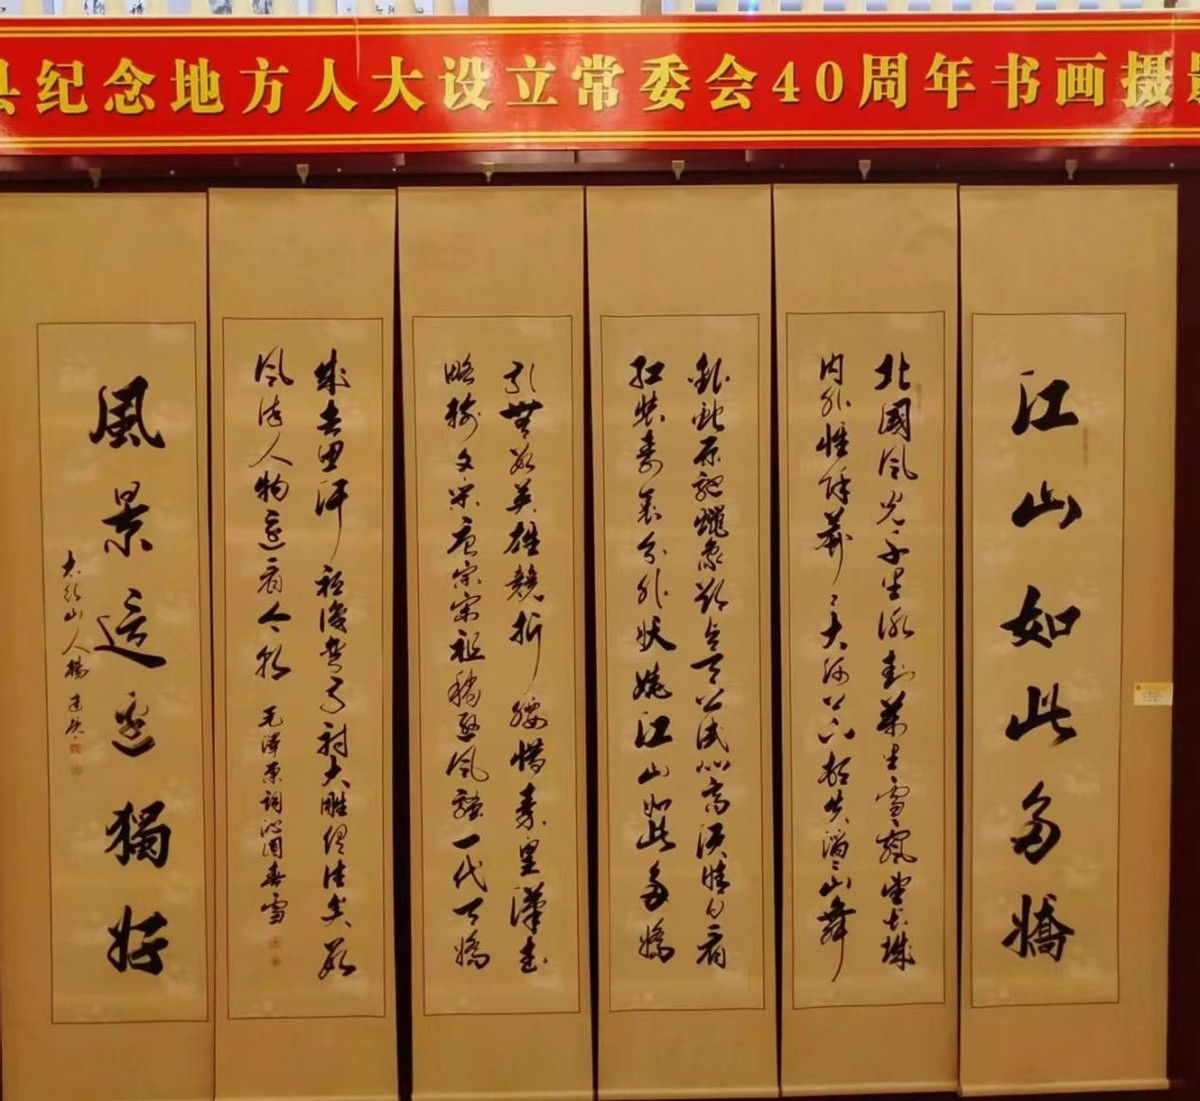 县纪念地方人大设立常委会40周年书画摄
江山如此多嬌
北國风光千里冰封萬里雪飘望长城
内外惟馀莽〻大河上下顿失滔〻山舞
銀蛇原馳蠟象欲与天公试比高须晴日看
红装素裹分外妖娆江山如此多嬌
引無数英雄競折腰惜秦皇漢武
略输文采唐宗宋祖稍逊风骚一代天嬌
成吉思汗祇识弯弓射大雕俱往矣数
风流人物还看今朝 毛泽东词沁园春雪
風景这边獨好
太行山人楊建